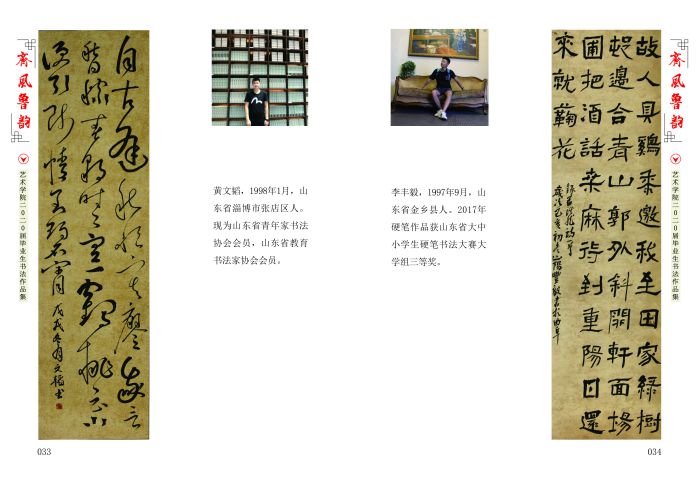 齊風魯韵
艺术学院二〇二〇届毕业生书法作品集
自古逢秋悲寂寥我言
秋日勝春朝晴空一鶴排雲上
便引詩情到碧霄
戊戌冬月文韬书
033
黄文韬，1998年1月，山
东省淄博市张店区人。
现为山东省青年家书法
协会会员，山东省教育
书法家协会会员。
李丰毅，1997年9月，山
东省金乡县人。2017年
硬笔作品获山东省大中
小学生硬笔书法大赛大
学组三等奖。
故人具雞黍邀我至田家綠樹
邨邊合青山郭外斜開軒面場
圃把酒話桑麻待到重陽日還
來就蘜花
齊風魯韵
艺术学院二〇二〇届毕业生书法作品集
034